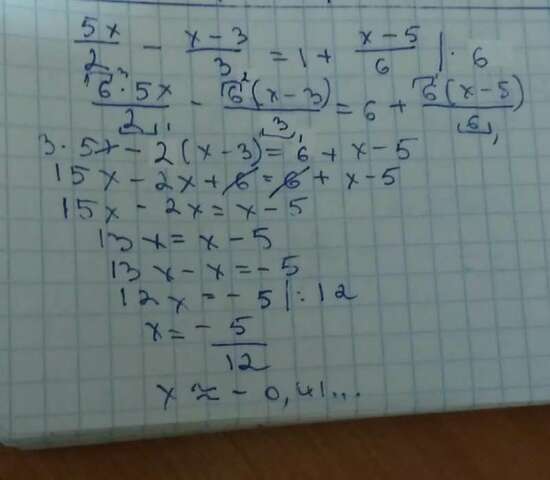 5x/2 - x-3/3 = 1 + x-5/6 |· 6
6·5x/2 - 6(x-3)/3 = 6 + 6(x-5)/6
3·5x - 2(x-3) = 6 + x-5
15x - 2x + 6 = 6 + x-5
15x - 2x = x - 5
13x = x - 5
13x - x = - 5
12x = - 5 |: 12
x = - 5/12
x ≈ - 0,41...